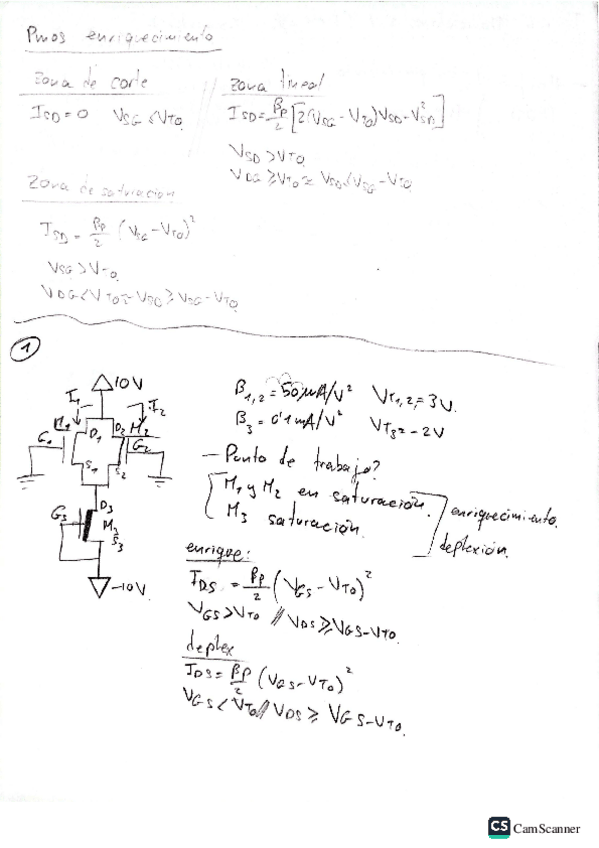 Pmos enriquecimiento
Zona de corte
I_SD = 0   V_SG < V_TO
Zona lineal
I_SD = β_P/2 [2(V_SG - V_TO)V_SD - V_SD²]
V_SD > V_TO
V_DG ≥ V_TO ≃ V_SD < V_SG - V_TO
Zona de saturacion
I_SD = β_P/2 (V_SG - V_TO)²
V_SG > V_TO
V_DG < V_TO ≃ V_SD ≥ V_SG - V_TO
1
10V
I1
I2
G1 M1 D1 D2 M2 G2
S1 S2
D3
G3 M3
S3
-10V
β1,2 = 50 µA/V²   V_T1,2 = 3V.
β3 = 0'1 mA/V²   V_T3 = -2V
- Punto de trabajo?
M1 y M2 en saturación. enriquecimiento.
M3 saturación. deplexión.
enrique:
I_DS = β_P/2 (V_GS - V_TO)²
V_GS > V_TO // V_DS ≥ V_GS - V_TO.
deplex
I_DS = β_P/2 (V_GS - V_TO)²
V_GS < V_TO // V_DS ≥ V_GS - V_TO.
CS CamScanner